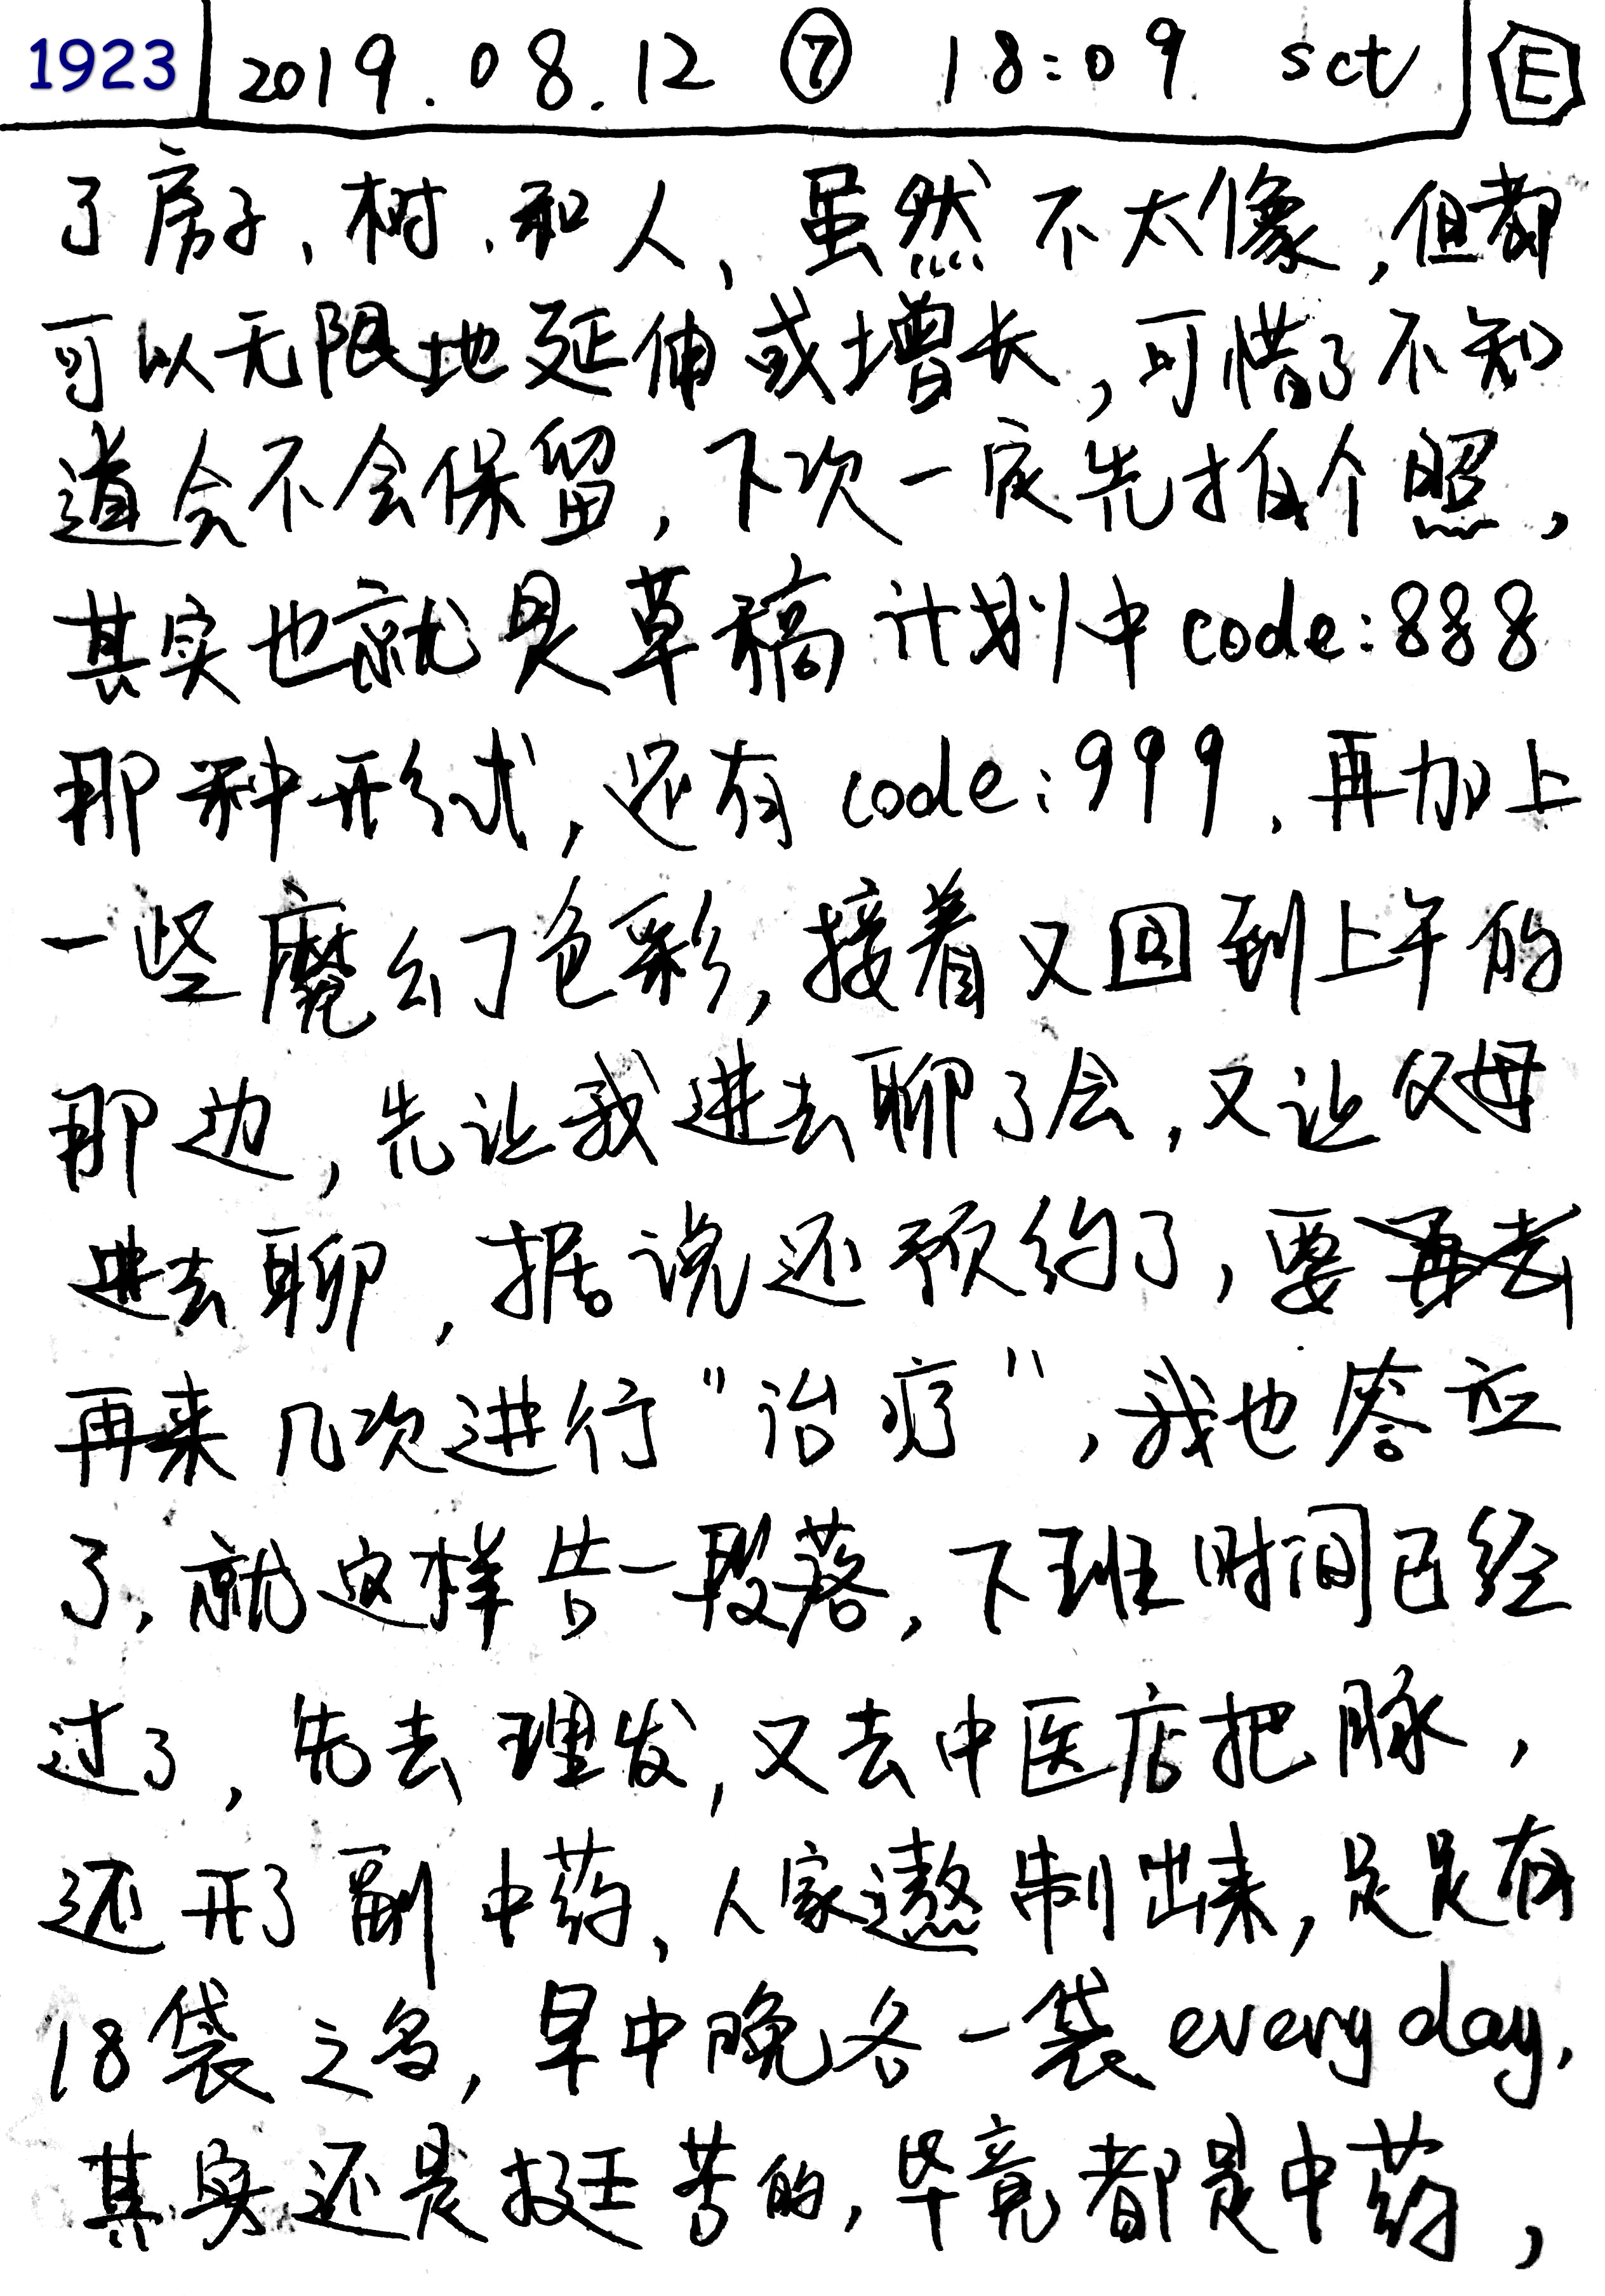 1923 2019.08.12 ⑦ 18:09 sct E
了房子、树、和人、虽然不太像,但都
可以无限地延伸或增长,可惜了不知
道会不会保留,下次一定先拍个照,
其实也就是草稿计划中code:888
那种形式,还有code:999,再加上
一些魔幻色彩,接着又回到上午的
那边,先让我进去聊了会,又让父母
进去聊,据说还预约了,要再去
再来几次进行"治疗",我也答应
了,就这样告一段落,下班时间已经
过了,先去理发,又去中医店把脉,
还开了副中药,人家遨制出来,足足有
18袋之多,早中晚各一袋everyday,
其实还是挺苦的,毕竟都是中药,